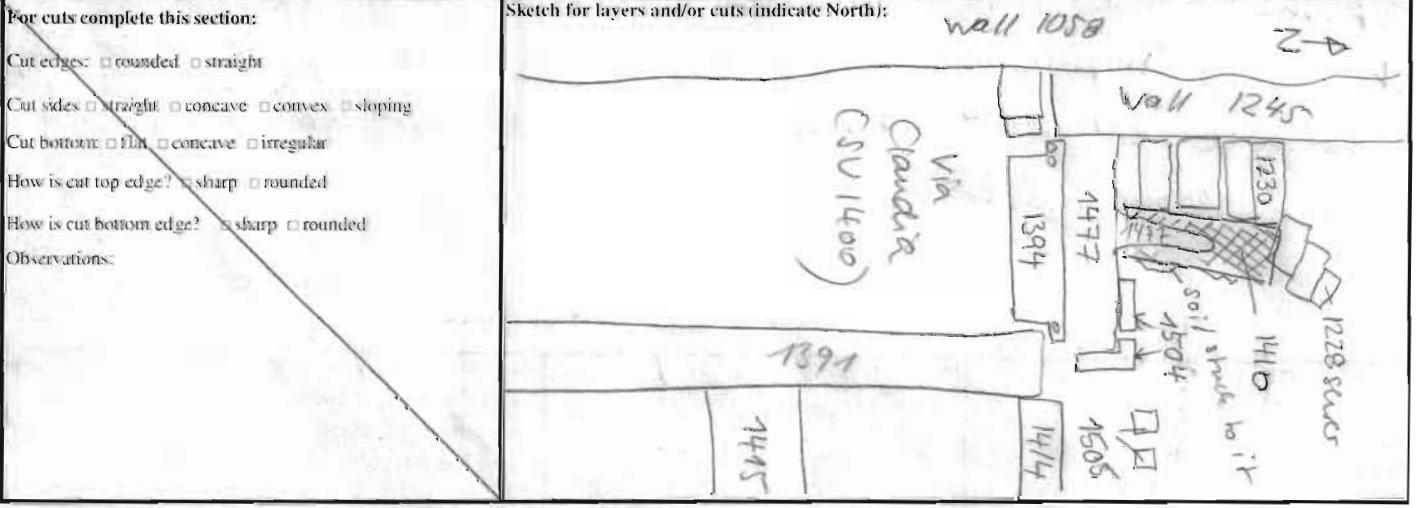 For cuts complete this section:
Cut edges: □ rounded □ straight
Cut sides □ straight □ concave □ convex □ sloping
Cut bottom: □ flat □ concave □ irregular
How is cut top edge? □ sharp □ rounded
How is cut bottom edge? □ sharp □ rounded
Observations:
Sketch for layers and/or cuts (indicate North):
wall 1058
N
wall 1245
Via
Claudia
(SU 1400)
1394
1477
1230
1497
soil stuck to it
1504
1410
1228 sewer
1391
1415
1414
1505